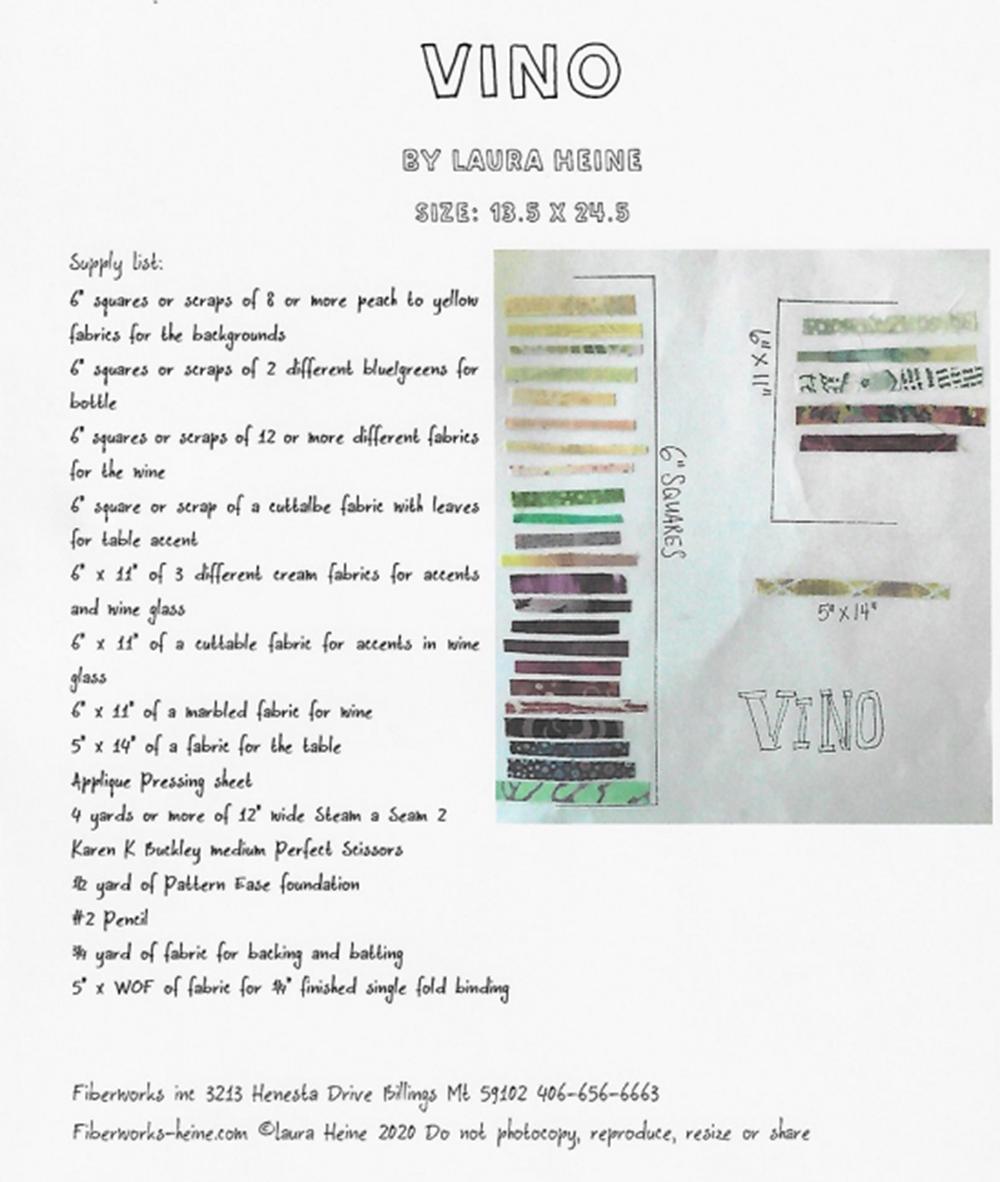 VINO
BY LAURA HEINE
SIZE: 13.5 X 24.5
Supply list:
6" squares or scraps of 8 or more peach to yellow
fabrics for the backgrounds
6" squares or scraps of 2 different blue/greens for
bottle
6" squares or scraps of 12 or more different fabrics
for the wine
6" square or scrap of a cuttalbe fabric with leaves
for table accent
6" x 11" of 3 different cream fabrics for accents
and wine glass
6" x 11" of a cuttable fabric for accents in wine
glass
6" x 11" of a marbled fabric for wine
5" x 14" of a fabric for the table
Applique Pressing sheet
4 yards or more of 12" wide Steam a Seam 2
Karen K Buckley medium Perfect Scissors
1/2 yard of Pattern Ease foundation
#2 Pencil
3/4 yard of fabric for backing and batting
5" x WOF of fabric for finished single fold binding
6" SQUARES
6" X 11"
5" X 14"
VINO
Fiberworks inc 3213 Henesta Drive Billings Mt 59102 406-656-6663
Fiberworks-heine.com ©Laura Heine 2020 Do not photocopy, reproduce, resize or share